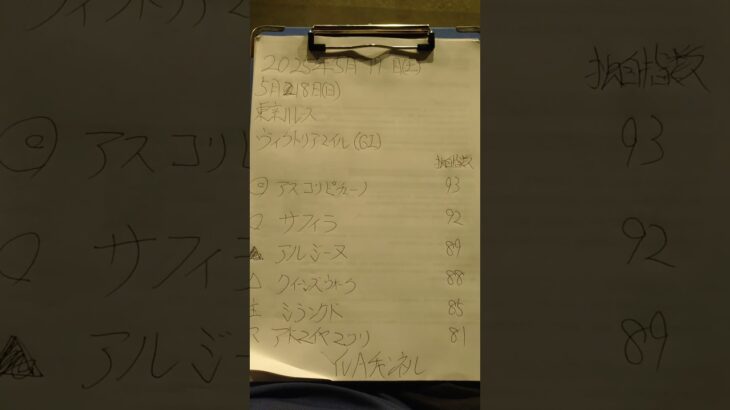 2025年5月17日(土)
5月18日(日)
東京11レス
ヴィクトリアマイル(GI)
独自指数
◎ アスコリピチェーノ 93
○ サフィラ 92
▲ アルジーヌ 89
△ クイーンズウォーク 88
注 シランケド 85
マ アドマイヤマツリ 81
YUAチャンネル